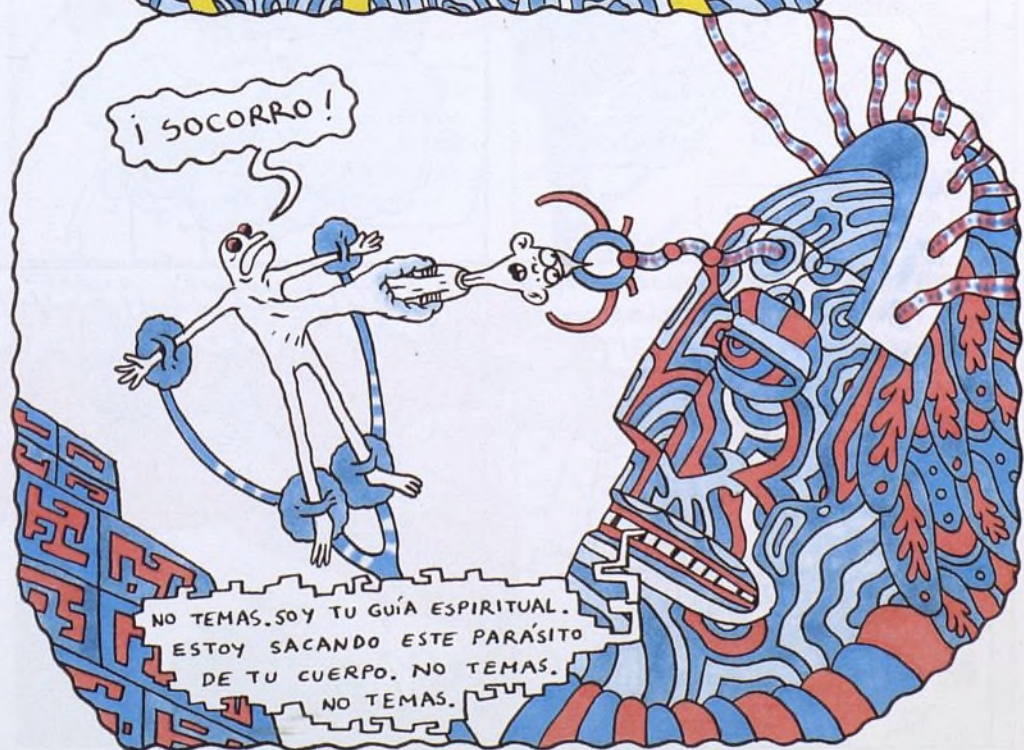 ¡SOCORRO!
NO TEMAS. SOY TU GUÍA ESPIRITUAL.
ESTOY SACANDO ESTE PARÁSITO
DE TU CUERPO. NO TEMAS.
NO TEMAS.